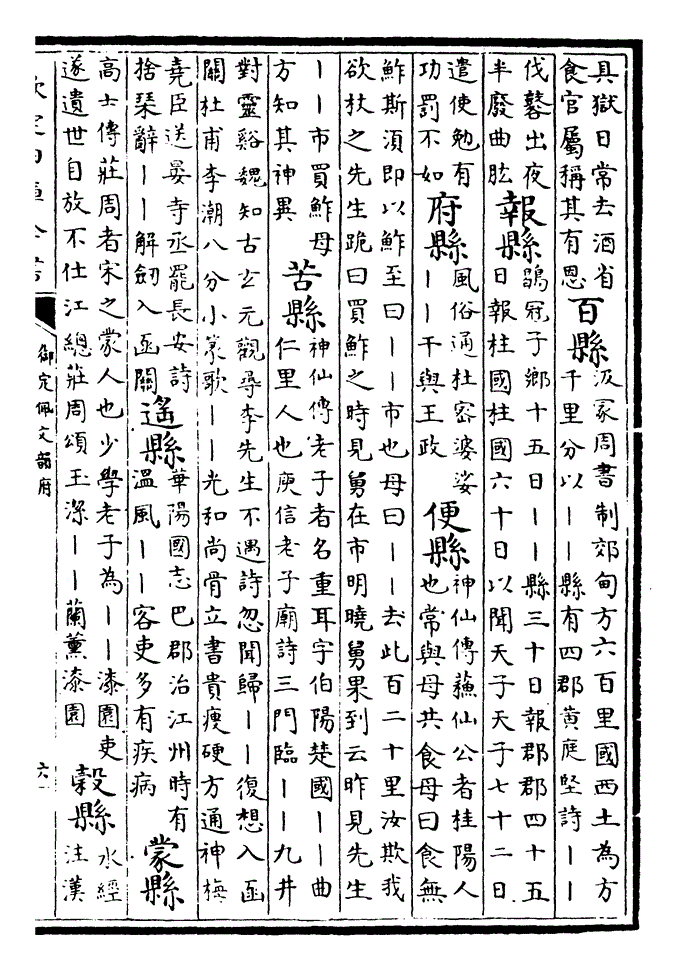 具獄日常去酒省
食官屬稱其有恩
百縣
汲冢周書制郊甸方六百里國西土為方
千里分以丨丨縣有四郡黃庭堅詩丨丨
伐鼛出夜
半廢曲肱
報縣
鶡冠子鄉十五日丨丨縣三十日報郡郡四十五
日報柱國柱國六十日以聞天子天子七十二日
遣使勉有
功罰不如
府縣
風俗通杜密婆娑
丨丨干與王政
便縣
神仙傳蘇仙公者桂陽人
也常與母共食母曰食無
鮓斯湏即以鮓至曰丨丨市也母曰丨丨去此百二十里汝欺我
欲杖之先生跪曰買鮓之時見舅在市明曉舅果到云昨見先生
丨丨市買鮓母
方知其神異
苦縣
神仙傳老子者名重耳字伯陽楚國丨丨曲
仁里人也庾信老子廟詩三門臨丨丨九井
對靈谿魏知古玄元觀尋李先生不遇詩忽聞歸丨丨復想入函
關杜甫李潮八分小篆歌丨丨光和尚骨立書貴瘦硬方通神梅
堯臣送晏寺丞罷長安詩
捨琴辭丨丨解劒入函關
遙縣
華陽國志巴郡治江州時有
温風丨丨客吏多有疾病
蒙縣
高士傳莊周者宋之蒙人也少學老子為丨丨漆園吏
遂遺世自放不仕江總莊周頌玉潔丨丨蘭薰漆園
穀縣
水經
注漢
欽定四庫全書
御定佩文韻府